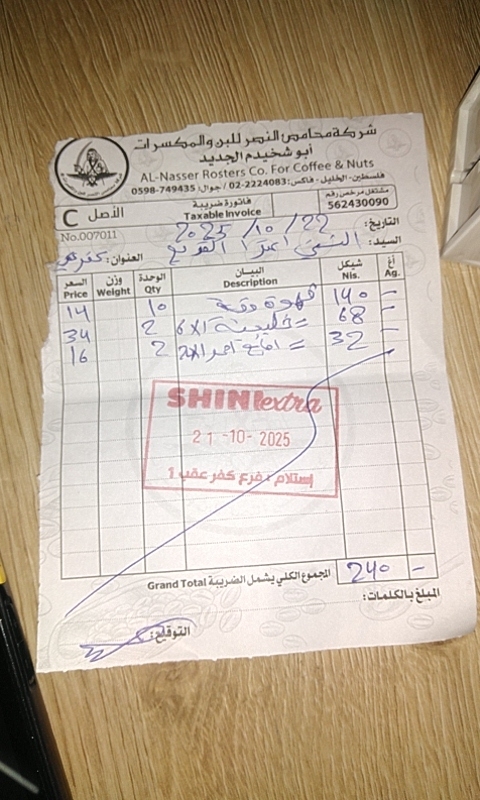 شركة محامص النصر للبن والمكسرات
أبو شخيدم الجديد
AL-Nasser Rosters Co. For Coffee & Nuts
فلسطين - الخليل - فاكس: 02/2224083 - جوال: 0598-749435
C الأصل
فاتورة ضريبة
Taxable Invoice
مشتغل مرخص رقم
562430090
No.007011
التاريخ: 2025/10/22
السيد: الشني اكسترا
العنوان: كفر
السعر Price وزن Weight الوحدة Qty البيـــان Description شيكل Nis. أغ Ag.
14 10 قهوة 140 -
34 2 = 68 -
16 2 = 32 -
SHINI extra
21-10-2025
إستلام: فرع كفر عقب 1
المجموع الكلي يشمل الضريبة Grand Total 240 -
المبلغ بالكلمات:
التوقيع: